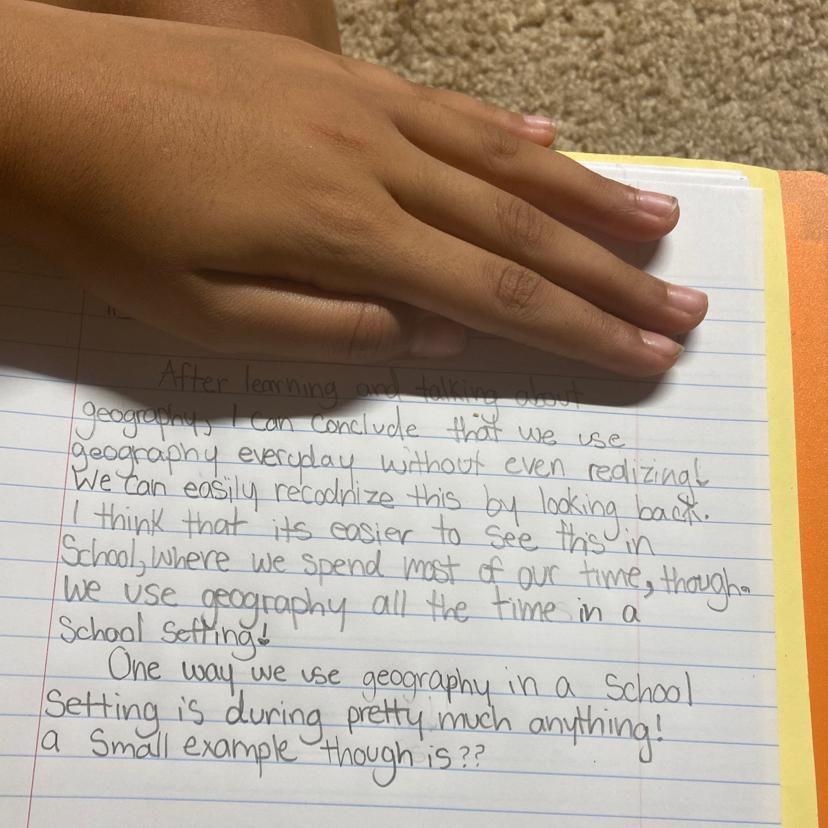 After learning and talking about
geography, I can conclude that we use
geography everyday without even realizing!
We can easily recodnize this by looking back.
I think that its easier to see this in
School, where we spend most of our time, though.
We use geography all the time in a
School Setting!
One way we use geography in a School
Setting is during pretty much anything!
a Small example though is??